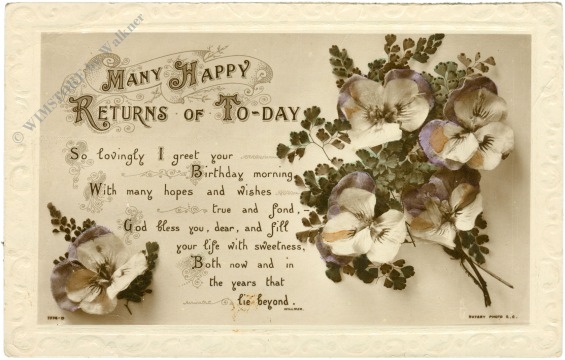 MANY HAPPY
RETURNS OF TO-DAY
So lovingly I greet your
Birthday morning,
With many hopes and wishes
true and fond,-
God bless you, dear, and fill
your life with sweetness,
Both now and in
the years that
lie beyond.
HILLMAN.
ROTARY PHOTO E.C.
© WIMSPORT Walkner